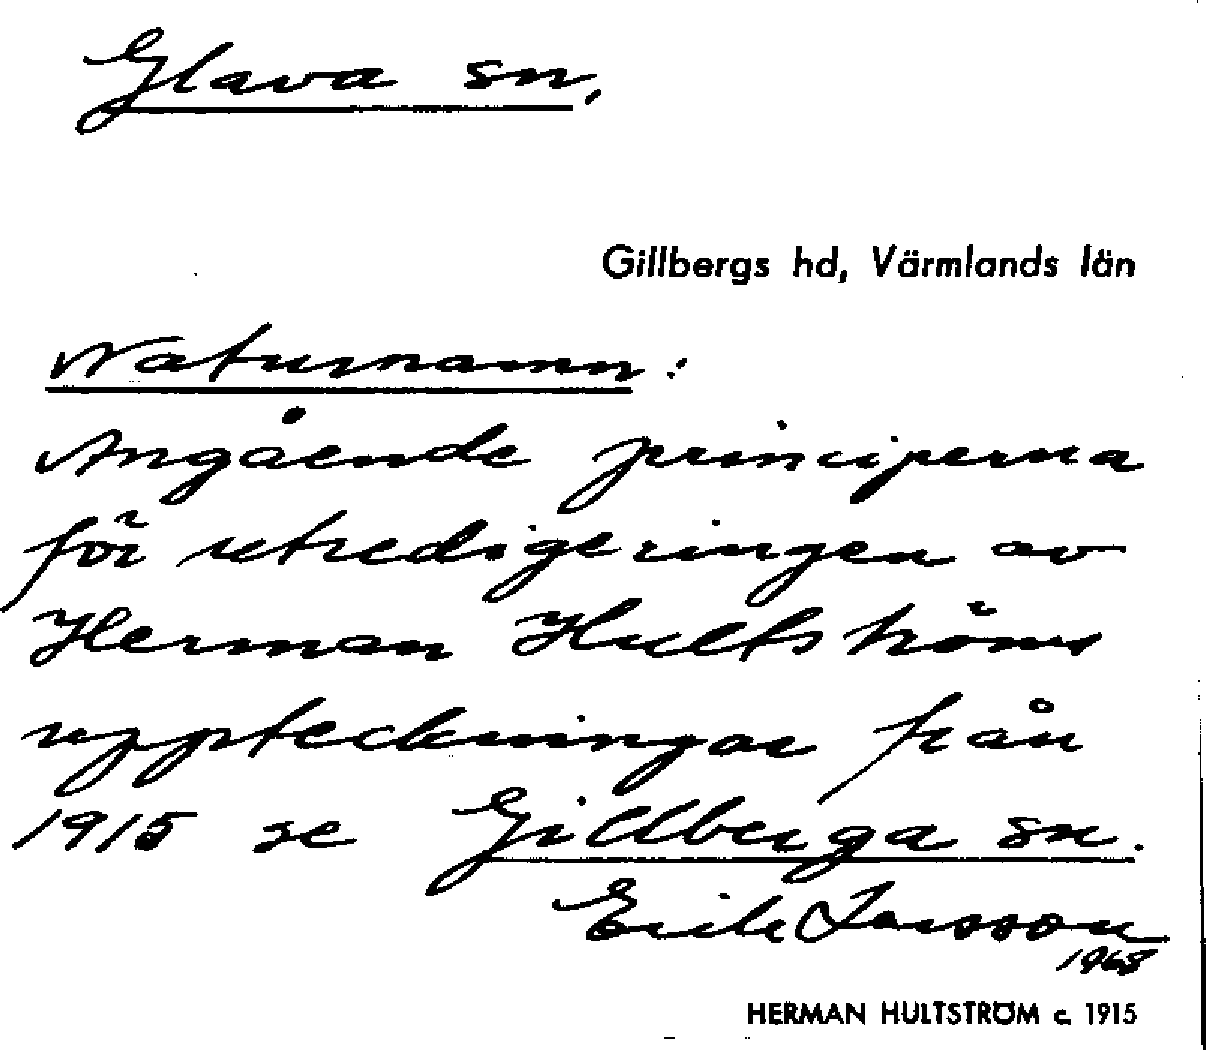 Glava sn.
Gillbergs hd, Värmlands län
Naturnamn:
Angående principerna
för utredigeringen av
Herman Hultströms
uppteckningar från
1915 se Gillberga sn.
Erik Larsson
1968
HERMAN HULTSTRÖM c. 1915